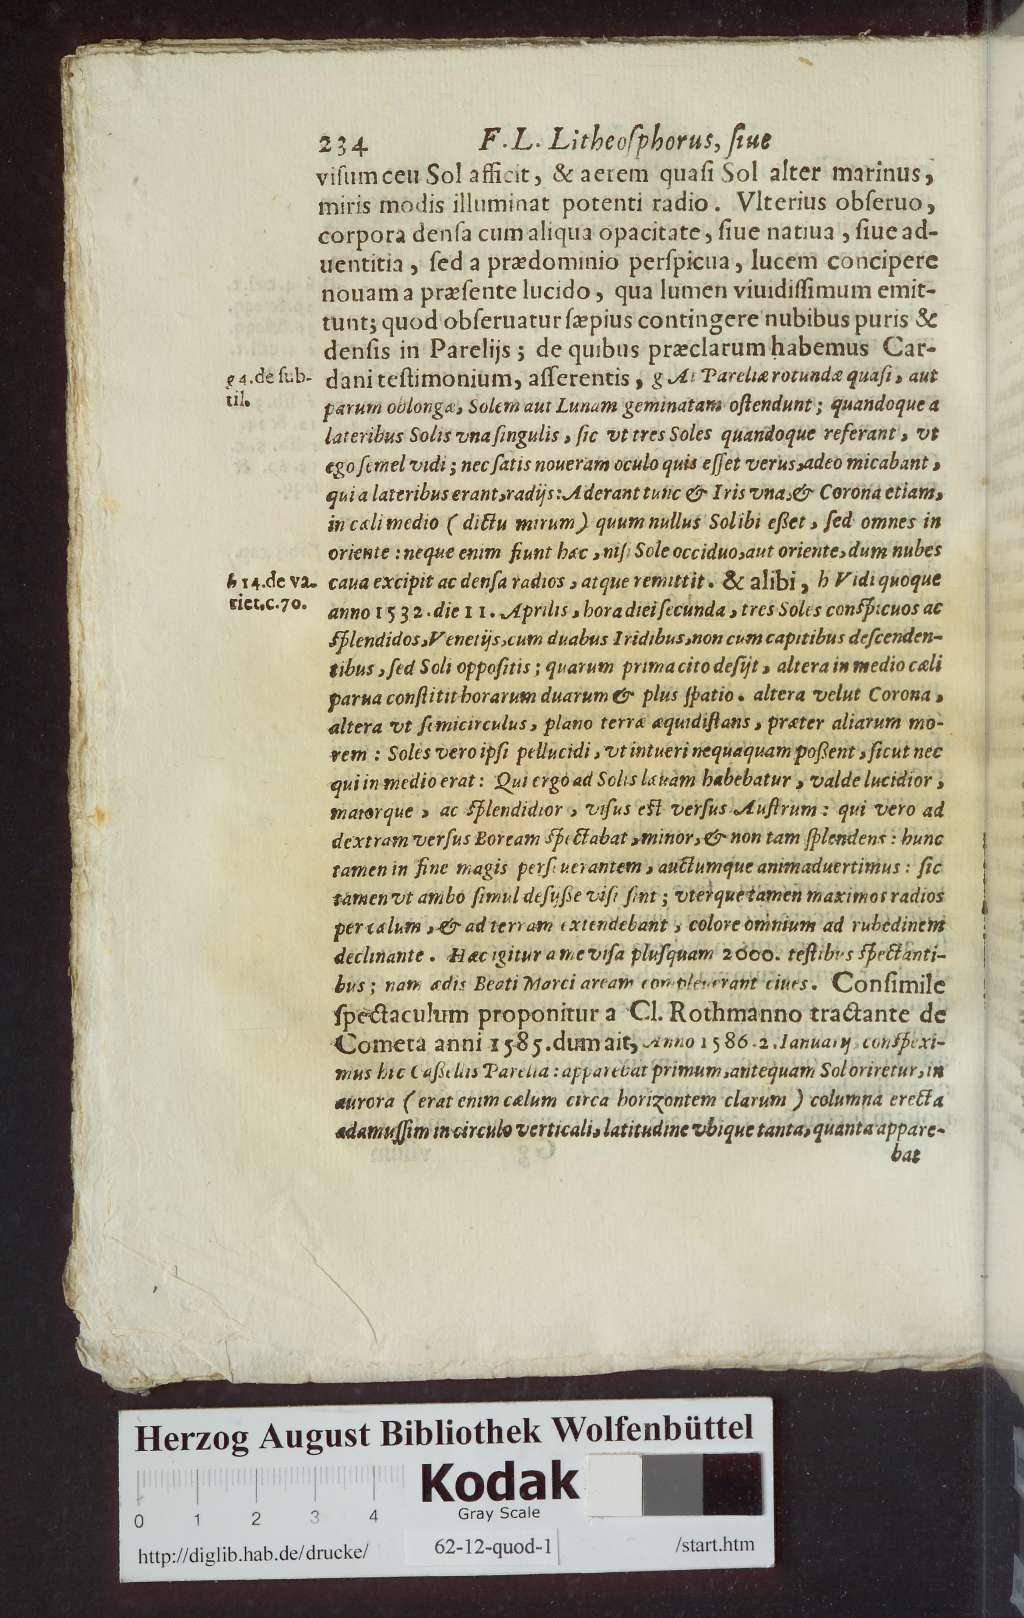 234 F. L. Litheoſphorus, ſiue
viſum ceu Sol afficit, & aerem quaſi Sol alter marinus,
miris modis illuminat potenti radio. Vlterius obſeruo,
corpora denſa cum aliqua opacitate, ſiue natiua, ſiue ad-
uentitia, ſed a prædominio perſpicua, lucem concipere
nouam a præſente lucido, qua lumen viuidiſſimum emit-
tunt; quod obſeruatur ſæpius contingere nubibus puris &
denſis in Parelijs; de quibus præclarum habemus Car-
g 4. de ſub-
til.
dani teſtimonium, aſſerentis, g At Pareliæ rotundæ quaſi, aut
parum oblongæ, Solem aut Lunam geminatam oſtendunt; quandoque a
lateribus Solis vna ſingulis, ſic vt tres Soles quandoque referant, vt
ego ſemel vidi; nec ſatis noueram oculo quis eſſet verus, adeo micabant,
qui a lateribus erant, radijs: Aderant tunc & Iris vna, & Corona etiam,
in cæli medio (dictu mirum) quum nullus Sol ibi eßet, ſed omnes in
oriente: neque enim fiunt hæc, niſi Sole occiduo, aut oriente, dum nubes
h 14. de va-
riet. c. 70.
caua excipit ac denſa radios, atque remittit. & alibi, h Vidi quoque
anno 1532. die 11. Aprilis, hora diei ſecunda, tres Soles conſpicuos ac
ſplendidos, Venetijs, cum duabus Iridibus, non cum capitibus deſcenden-
tibus, ſed Soli oppoſitis; quarum prima cito deſijt, altera in medio cæli
parua conſtitit horarum duarum & plus ſpatio. altera velut Corona,
altera vt ſemicirculus, plano terræ æquidiſtans, præter aliarum mo-
rem: Soles vero ipſi pellucidi, vt intueri nequaquam poßent, ſicut nec
qui in medio erat: Qui ergo ad Solis læuam habebatur, valde lucidior,
maiorque, ac ſplendidior, viſus eſt verſus Auſtrum: qui vero ad
dextram verſus Boream ſpectabat, minor, & non tam ſplendens: hunc
tamen in fine magis perſeuerantem, auctumque animaduertimus: ſic
tamen vt ambo ſimul deſijße viſi ſint; vterque tamen maximos radios
per cælum, & ad terram extendebant, colore omnium ad rubedinem
declinante. Hæc igitur a me viſa pluſquam 2000. teſtibus ſpectanti-
bus; nam ædis Beati Marci aream compleuerant ciues. Conſimile
ſpectaculum proponitur a Cl. Rothmanno tractante de
Cometa anni 1585. dum ait, Anno 1586. 2. Ianuarij, conſpexi-
mus hic Caßellis Parelia: apparebat primum, antequam Sol oriretur, in
aurora (erat enim cælum circa horizontem clarum) columna erecta
adamuſſim in circulo verticali, latitudine vbique tanta, quanta appare-
bat
Herzog August Bibliothek Wolfenbüttel
Kodak
Gray Scale
0 1 2 3 4
http://diglib.hab.de/drucke/ 62-12-quod-1 /start.htm